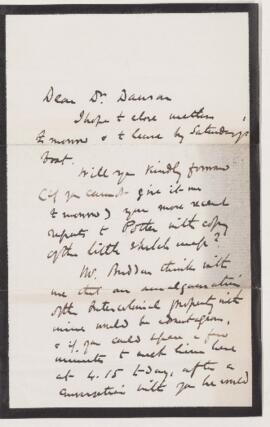 Dear Dr. Dawson
I hope to close matters
to morrow & to leave by Saturday's
boat.
Will you kindly forward
(if you cannot give it me
to morrow) your more recent
reports to Potter with copy
of the little sketch map?
Mr. Budden thinks with
me that an amalgamation
of the Intercolonial property with
mine would be advantageous,
& if you could spare a few
minutes to meet him here
at 4.15 to day, after a
conversation with you he would